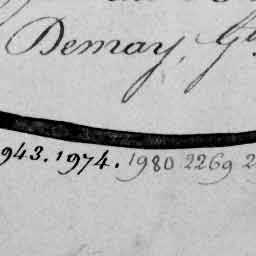 Demay, G
943. 1974. 1980 2269 2